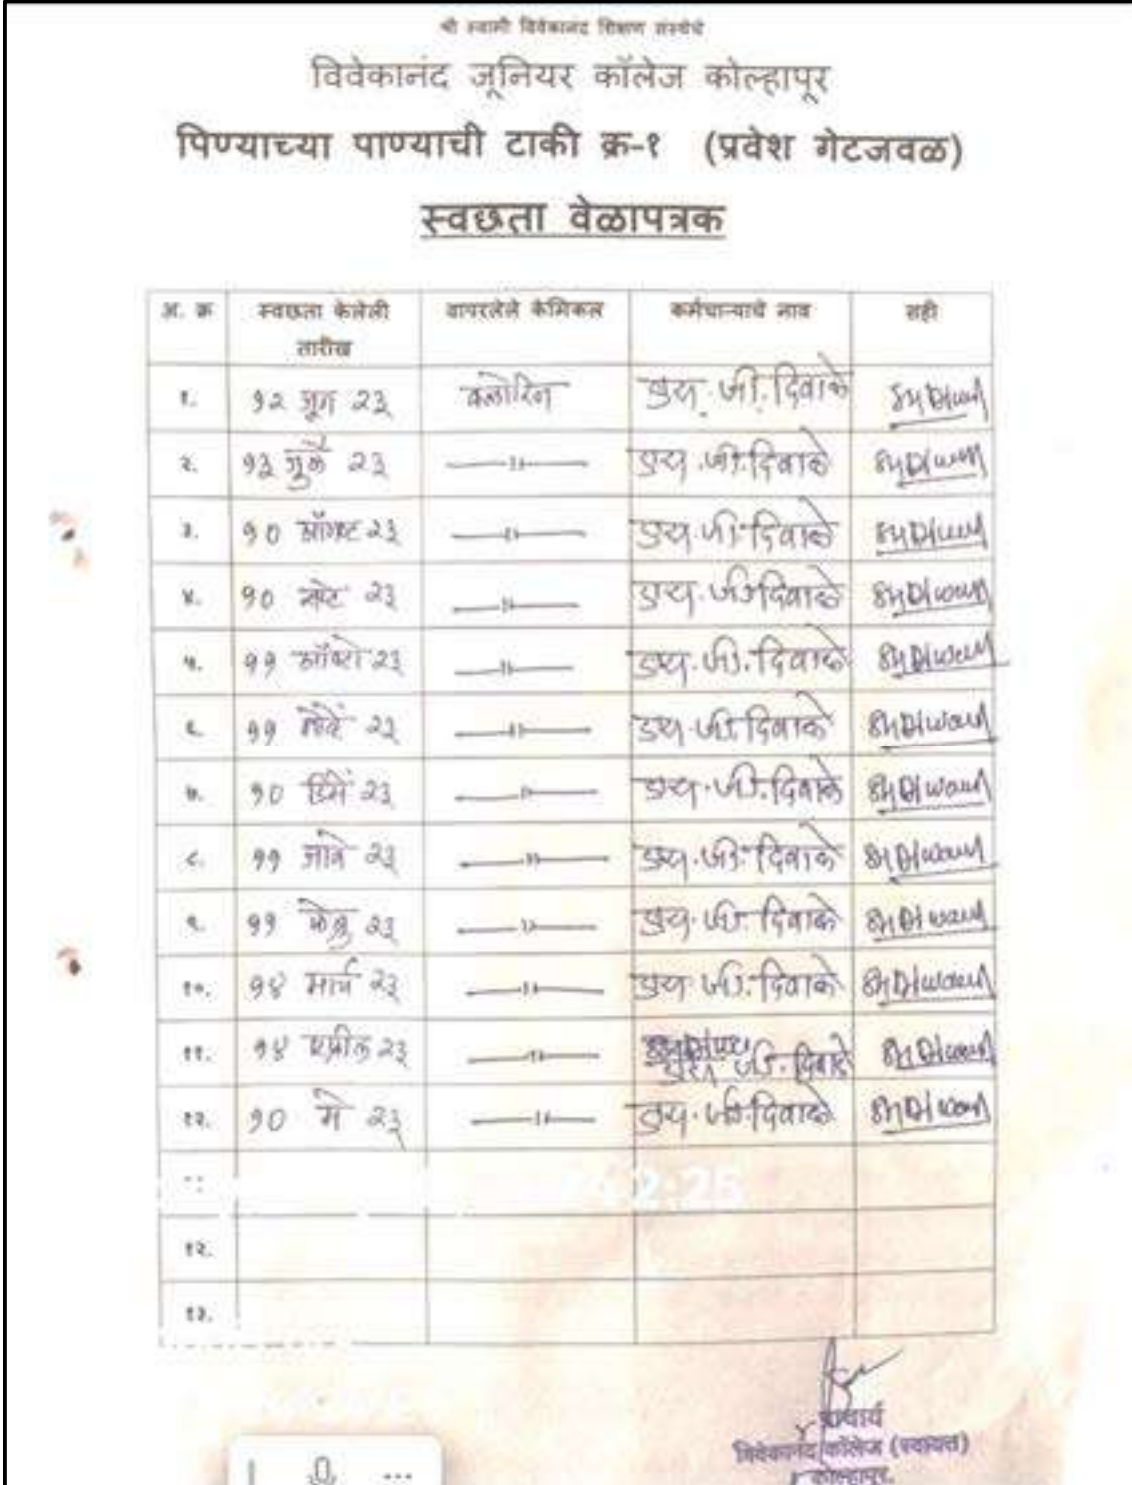 श्री स्वामी विवेकानंद शिक्षण संस्थेचे
विवेकानंद जूनियर कॉलेज कोल्हापूर
पिण्याच्या पाण्याची टाकी क्र-१ (प्रवेश गेटजवळ)
स्वछता वेळापत्रक
अ. क्र स्वछता केलेली तारीख वापरलेले केमिकल कर्मचाऱ्याचे नाव सही
१. १२ जून २३ क्लोरिन डाय. जी. दिवाळे
२. १३ जुलै २३ —〃— डाय. जी. दिवाळे
३. १० ऑगस्ट २३ —〃— डाय. जी. दिवाळे
४. १० सप्टे २३ —〃— डाय. जी. दिवाळे
५. ११ ऑक्टो २३ —〃— डाय. जी. दिवाळे
६. ११ नोव्हें २३ —〃— डाय. जी. दिवाळे
७. १० डिसें २३ —〃— डाय. जी. दिवाळे
८. ११ जाने २३ —〃— डाय. जी. दिवाळे
९. ११ फेब्रु २३ —〃— डाय. जी. दिवाळे
१०. १४ मार्च २३ —〃— डाय. जी. दिवाळे
११. १४ एप्रील २३ —〃— जी. दिवाळे
१२. १० मे २३ —〃— डाय. जी. दिवाळे
2:25
१२.
१३.
प्राचार्य
विवेकानंद कॉलेज (स्वायत्त)
कोल्हापूर.